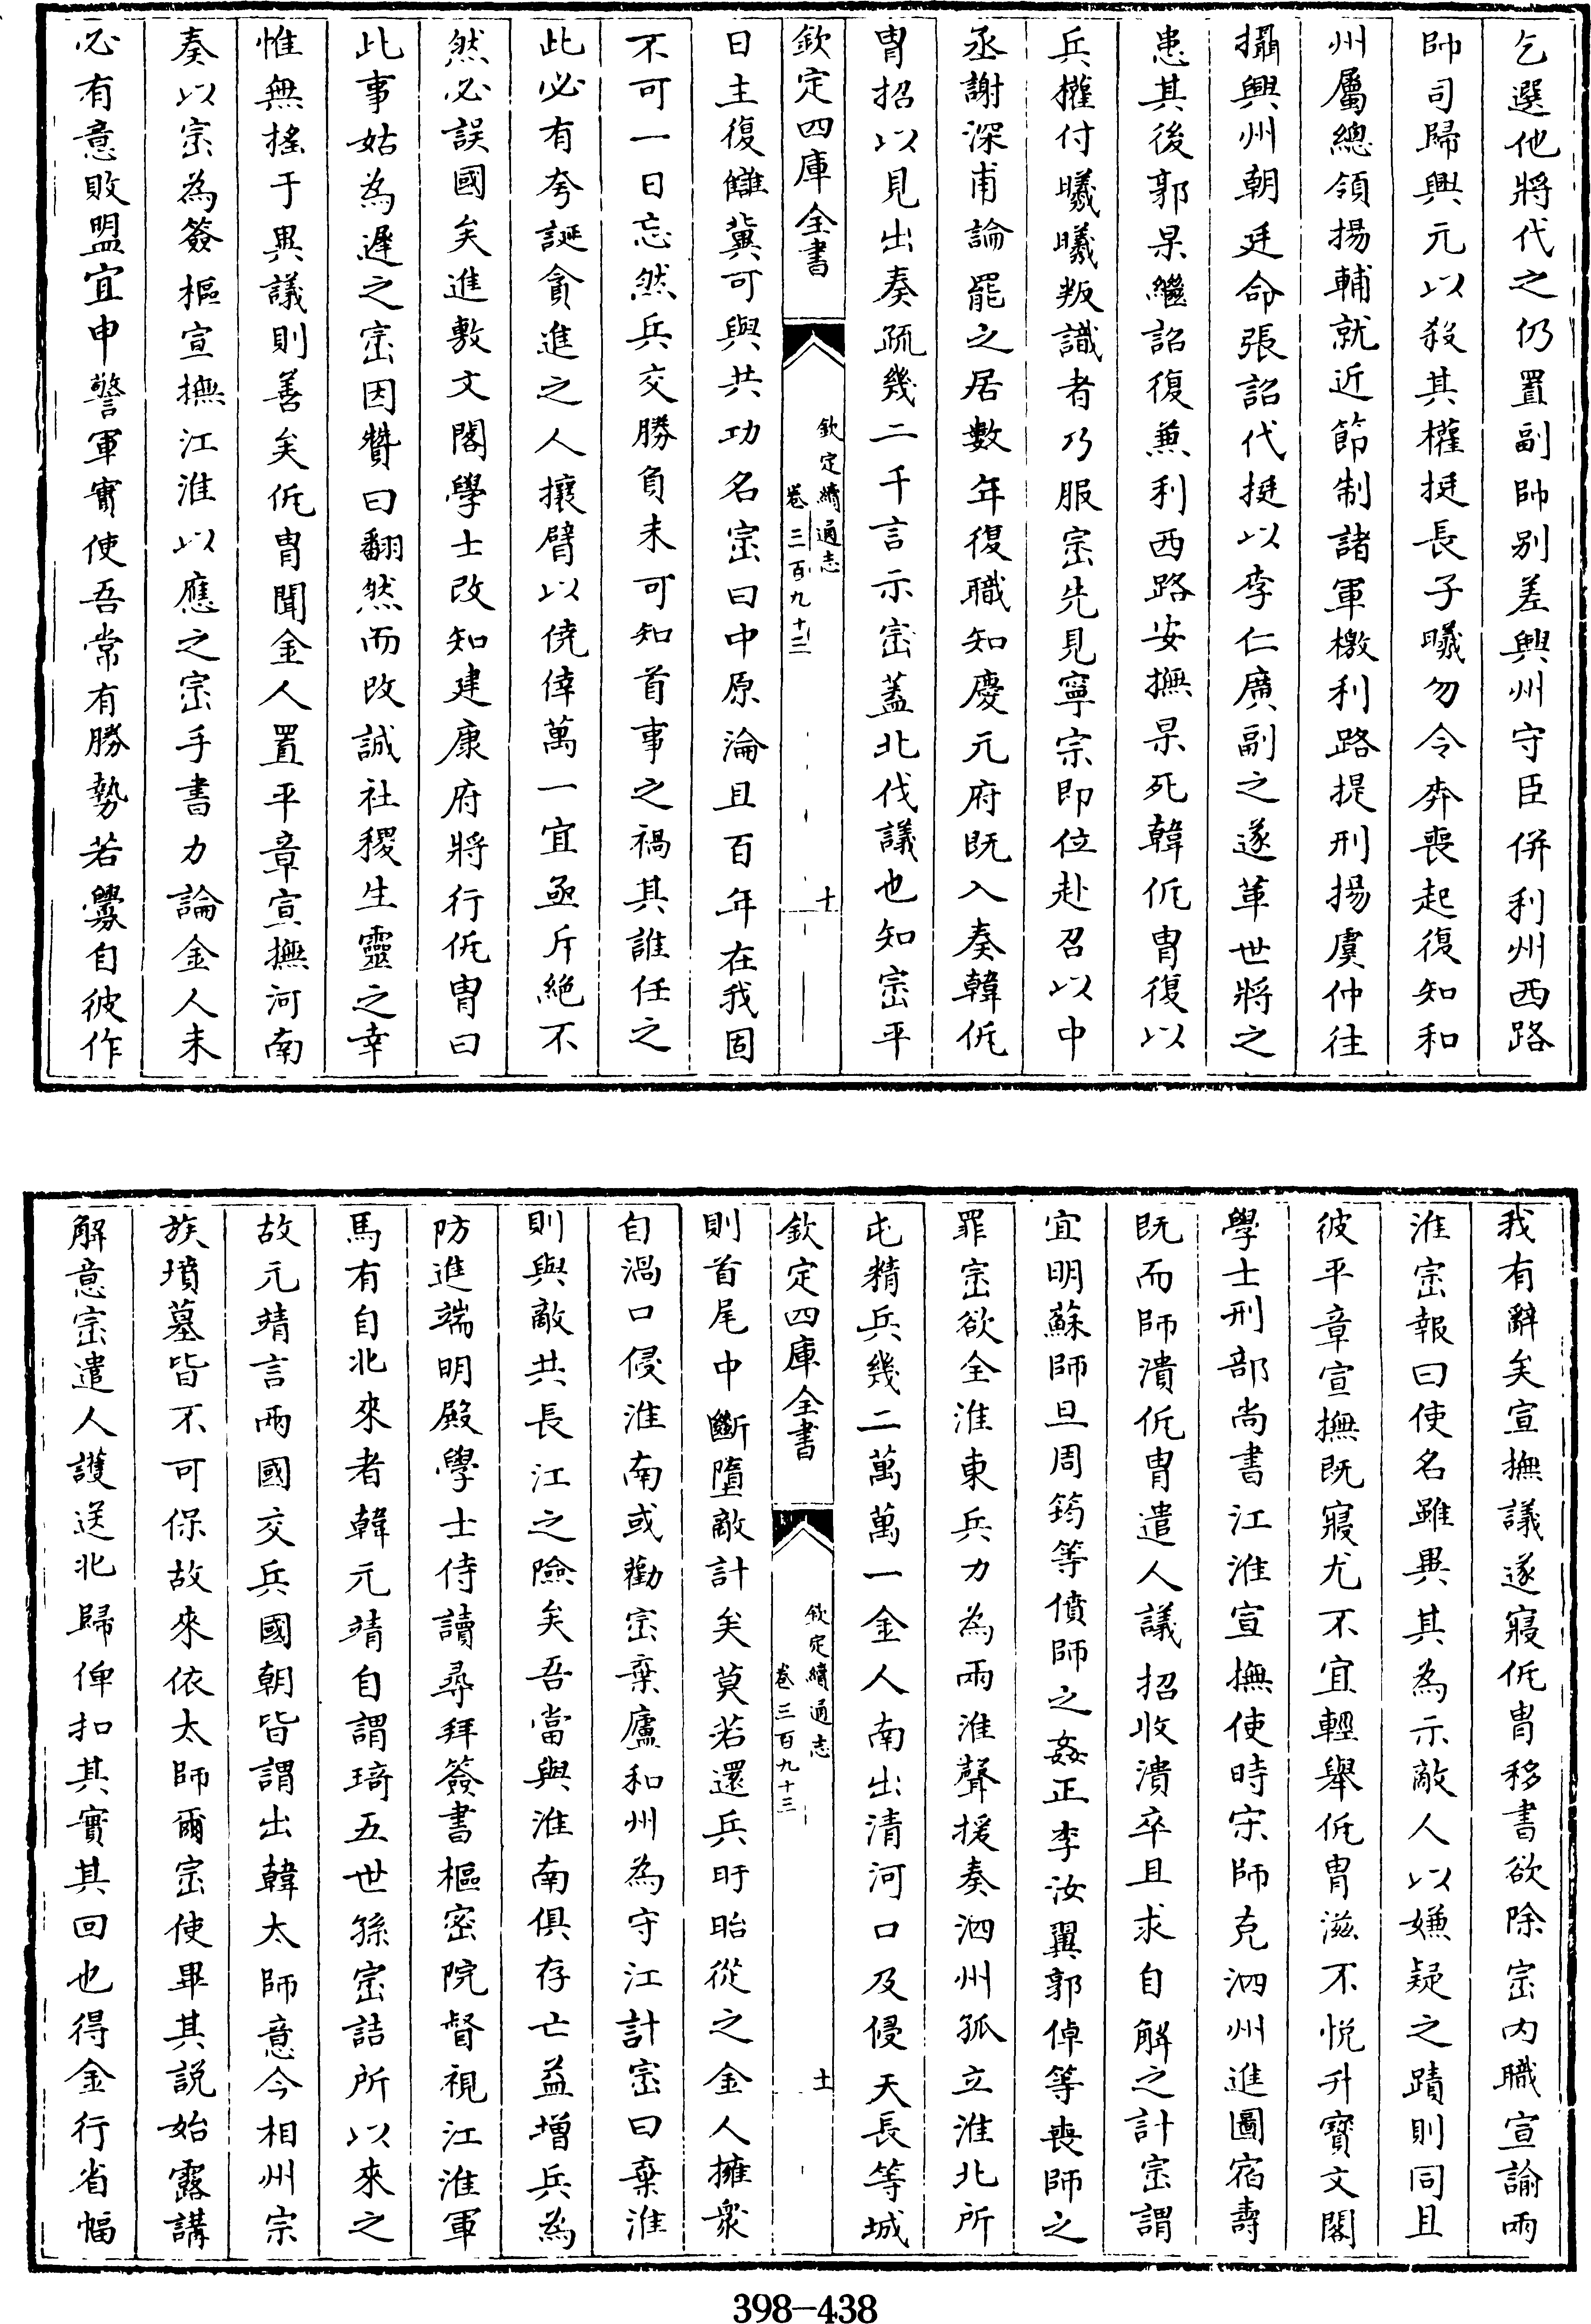 乞選他將代之仍置副帥别差興州守臣併利州西路
帥司歸興元以殺其權挺長子曦勿令奔喪起復知和
州屬總領揚輔就近節制諸軍檄利路提刑揚虞仲往
攝興州朝廷命張詔代挺以李仁廣副之遂革世將之
患其後郭杲繼詔復兼利西路安撫杲死韓侂胄復以
兵權付曦曦叛識者乃服崈先見寧宗即位赴召以中
丞謝深甫論罷之居數年復職知慶元府既入奏韓侂
胄招以見出奏疏幾二千言示崈蓋北伐議也知崈平
欽定四庫全書
欽定續通志
卷三百九十三
十
日主復讎冀可與共功名崈曰中原淪且百年在我固
不可一日忘然兵交勝負未可知首事之禍其誰任之
此必有夸誕貪進之人攘臂以僥倖萬一宜亟斥絶不
然必誤國矣進敷文閣學士改知建康府將行侂胄曰
此事姑為遲之崈因贊曰翻然而改誠社稷生靈之幸
惟無搖于異議則善矣侂胄聞金人置平章宣撫河南
奏以崈為簽樞宣撫江淮以應之崈手書力論金人未
必有意敗盟宜申警軍實使吾常有勝勢若釁自彼作
我有辭矣宣撫議遂寢侂胄移書欲除崈内職宣諭兩
淮崈報曰使名雖異其為示敵人以嫌疑之蹟則同且
彼平章宣撫既寢尤不宜輕舉侂胄滋不悦升寳文閣
學士刑部尚書江淮宣撫使時宋師克泗州進圖宿壽
既而師潰侂胄遣人議招收潰卒且求自解之計崈謂
宜明蘇師旦周筠等僨師之姦正李汝翼郭倬等喪師之
罪崈欲全淮東兵力為兩淮聲援奏泗州孤立淮北所
屯精兵幾二萬萬一金人南出清河口及侵天長等城
欽定四庫全書
欽定續通志
卷三百九十三
十一
則首尾中斷墮敵計矣莫若還兵盱眙從之金人擁衆
自渦口侵淮南或勸崈棄廬和州為守江計崈曰棄淮
則與敵共長江之險矣吾當與淮南俱存亡益增兵為
防進端明殿學士侍讀尋拜簽書樞密院督視江淮軍
馬有自北來者韓元靖自謂琦五世孫崈詰所以來之
故元靖言兩國交兵國朝皆謂出韓太師意今相州宗
族墳墓皆不可保故來依太師爾崈使畢其説始露講
解意崈遣人護送北歸俾扣其實其回也得金行省幅
398-438